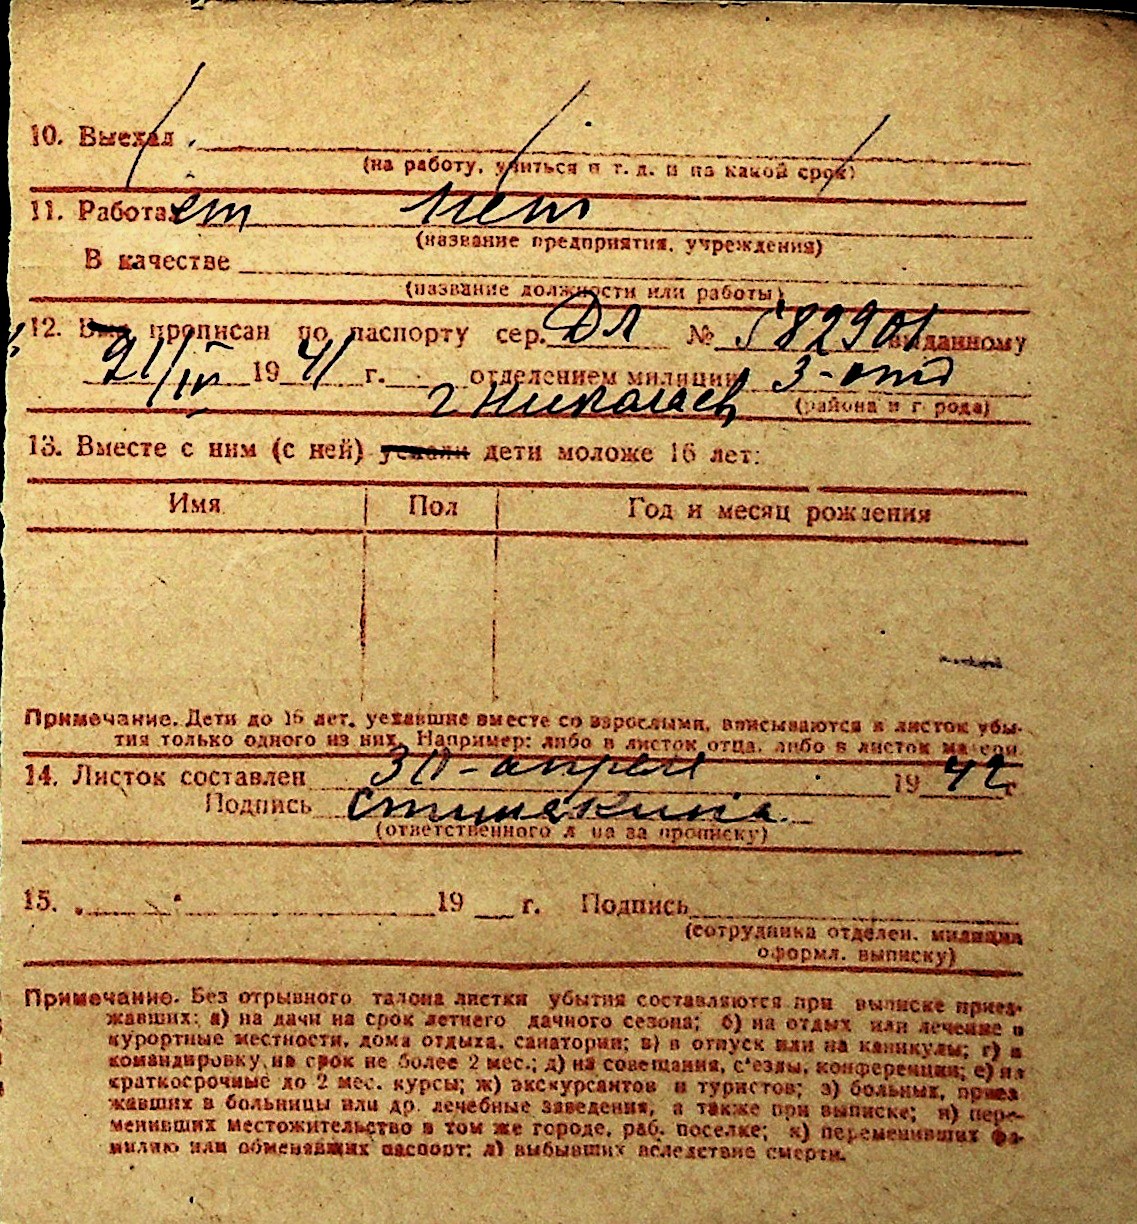 10. Выехал
(на работу, учиться и т. д. и на какой срок)
11. Работает нет
(название предприятия, учреждения)
В качестве
(название должности или работы)
12. Был прописан по паспорту сер. ДЛ № 582901 выданному
21/IV 1941 г. отделением милиции 3-отд
г Николаев (района и города)
13. Вместе с ним (с ней) уехали дети моложе 16 лет:
Имя Пол Год и месяц рождения
Примечание. Дети до 16 лет, уехавшие вместе со взрослыми, вписываются в листок убы-
тия только одного из них. Например: либо в листок отца, либо в листок матери.
14. Листок составлен 30-апреля 1942 г
Подпись
(ответственного лица за прописку)
15. 19 г. Подпись
(сотрудника отделен. милиции
оформл. выписку)
Примечание. Без отрывного талона листки убытия составляются при выписке приез-
жавших: а) на дачи на срок летнего дачного сезона; б) на отдых или лечение в
курортные местности, дома отдыха, санатории; в) в отпуск или на каникулы; г) в
командировку на срок не более 2 мес.; д) на совещания, с'езды, конференции; е) на
краткосрочные до 2 мес. курсы; ж) экскурсантов и туристов; з) больных, приез
жавших в больницы или др. лечебные заведения, а также при выписке; и) пере-
менивших местожительство в том же городе, раб. поселке; к) переменивших фа-
милию или обменявших паспорт; л) выбывших вследствие смерти.